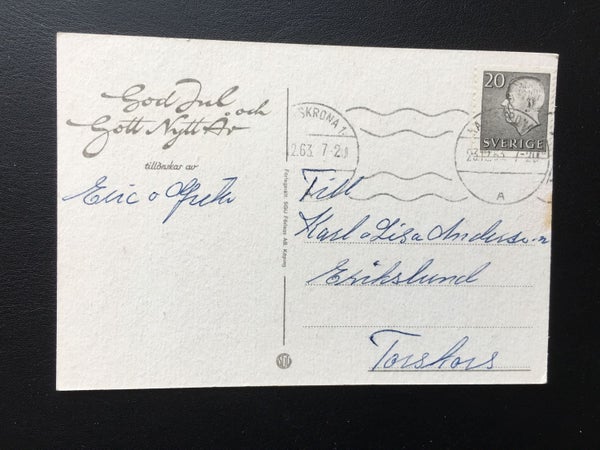 God Jul och
Gott Nytt År
tillönskar av
Eric o Greta
SKRONA 1
2.63. 7-20
20
SVERIGE
23.12.63. 7-20
A
Förlagsakt. SGU Förlags AB, Köping
Till
Karl o Lisa Andersson
Erikslund
Torskors